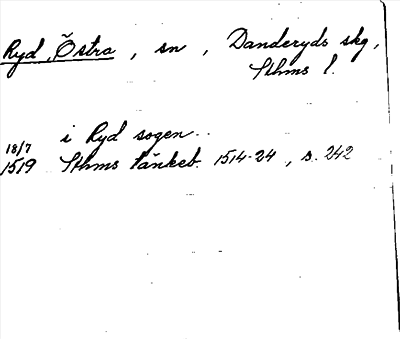 Ryd, Östra, sn, Danderyds skg,
Sthms l.
i Ryd sogen
18/7
1519 Sthms tänkeb. 1514-24, s. 242